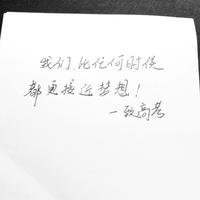 我们比任何时候
都更接近梦想!
一致高考